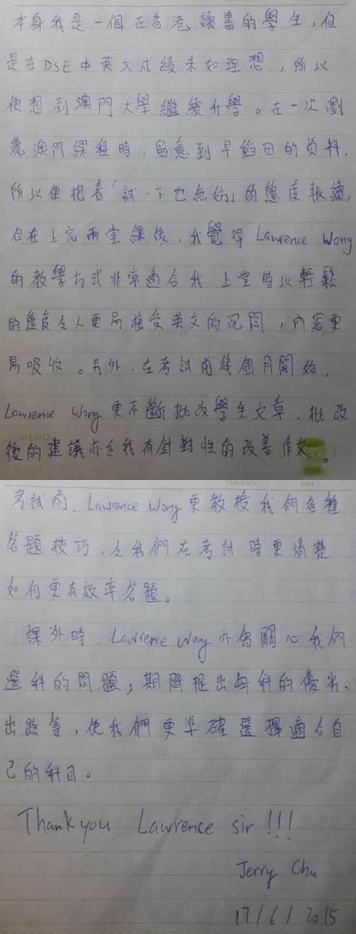 本身我是一個在香港讀書的學生，但
是在DSE中英文成績未如理想，所以
便想到澳門大學繼續升學。在一次瀏
覽澳門課程時，留意到早稻田的資料，
所以便抱着「試一下也無妨」的態度報讀，
但在上完兩堂課後，我覺得 Lawrence Wong
的教學方式非常適合我，上堂時以輕鬆
的態度令人更易接受英文的沉悶，內容更
易吸收。另外，在考試前幾個月開始，
Lawrence Wong 更不斷批改學生文章，批改
後的建議亦令我有針對性的改善作文。
MEMO
考試前，Lawrence Wong 更教授我們各種
答題技巧，令我們在考試時更清楚
如何更有效率答題。
課外時，Lawrence Wong 亦會關心我們
選科的問題，期間提出每科的優劣、
出路等，使我們更準確選擇適合自
己的科目。
Thank you Lawrence sir !!!
Jerry Chu
17/6/2015